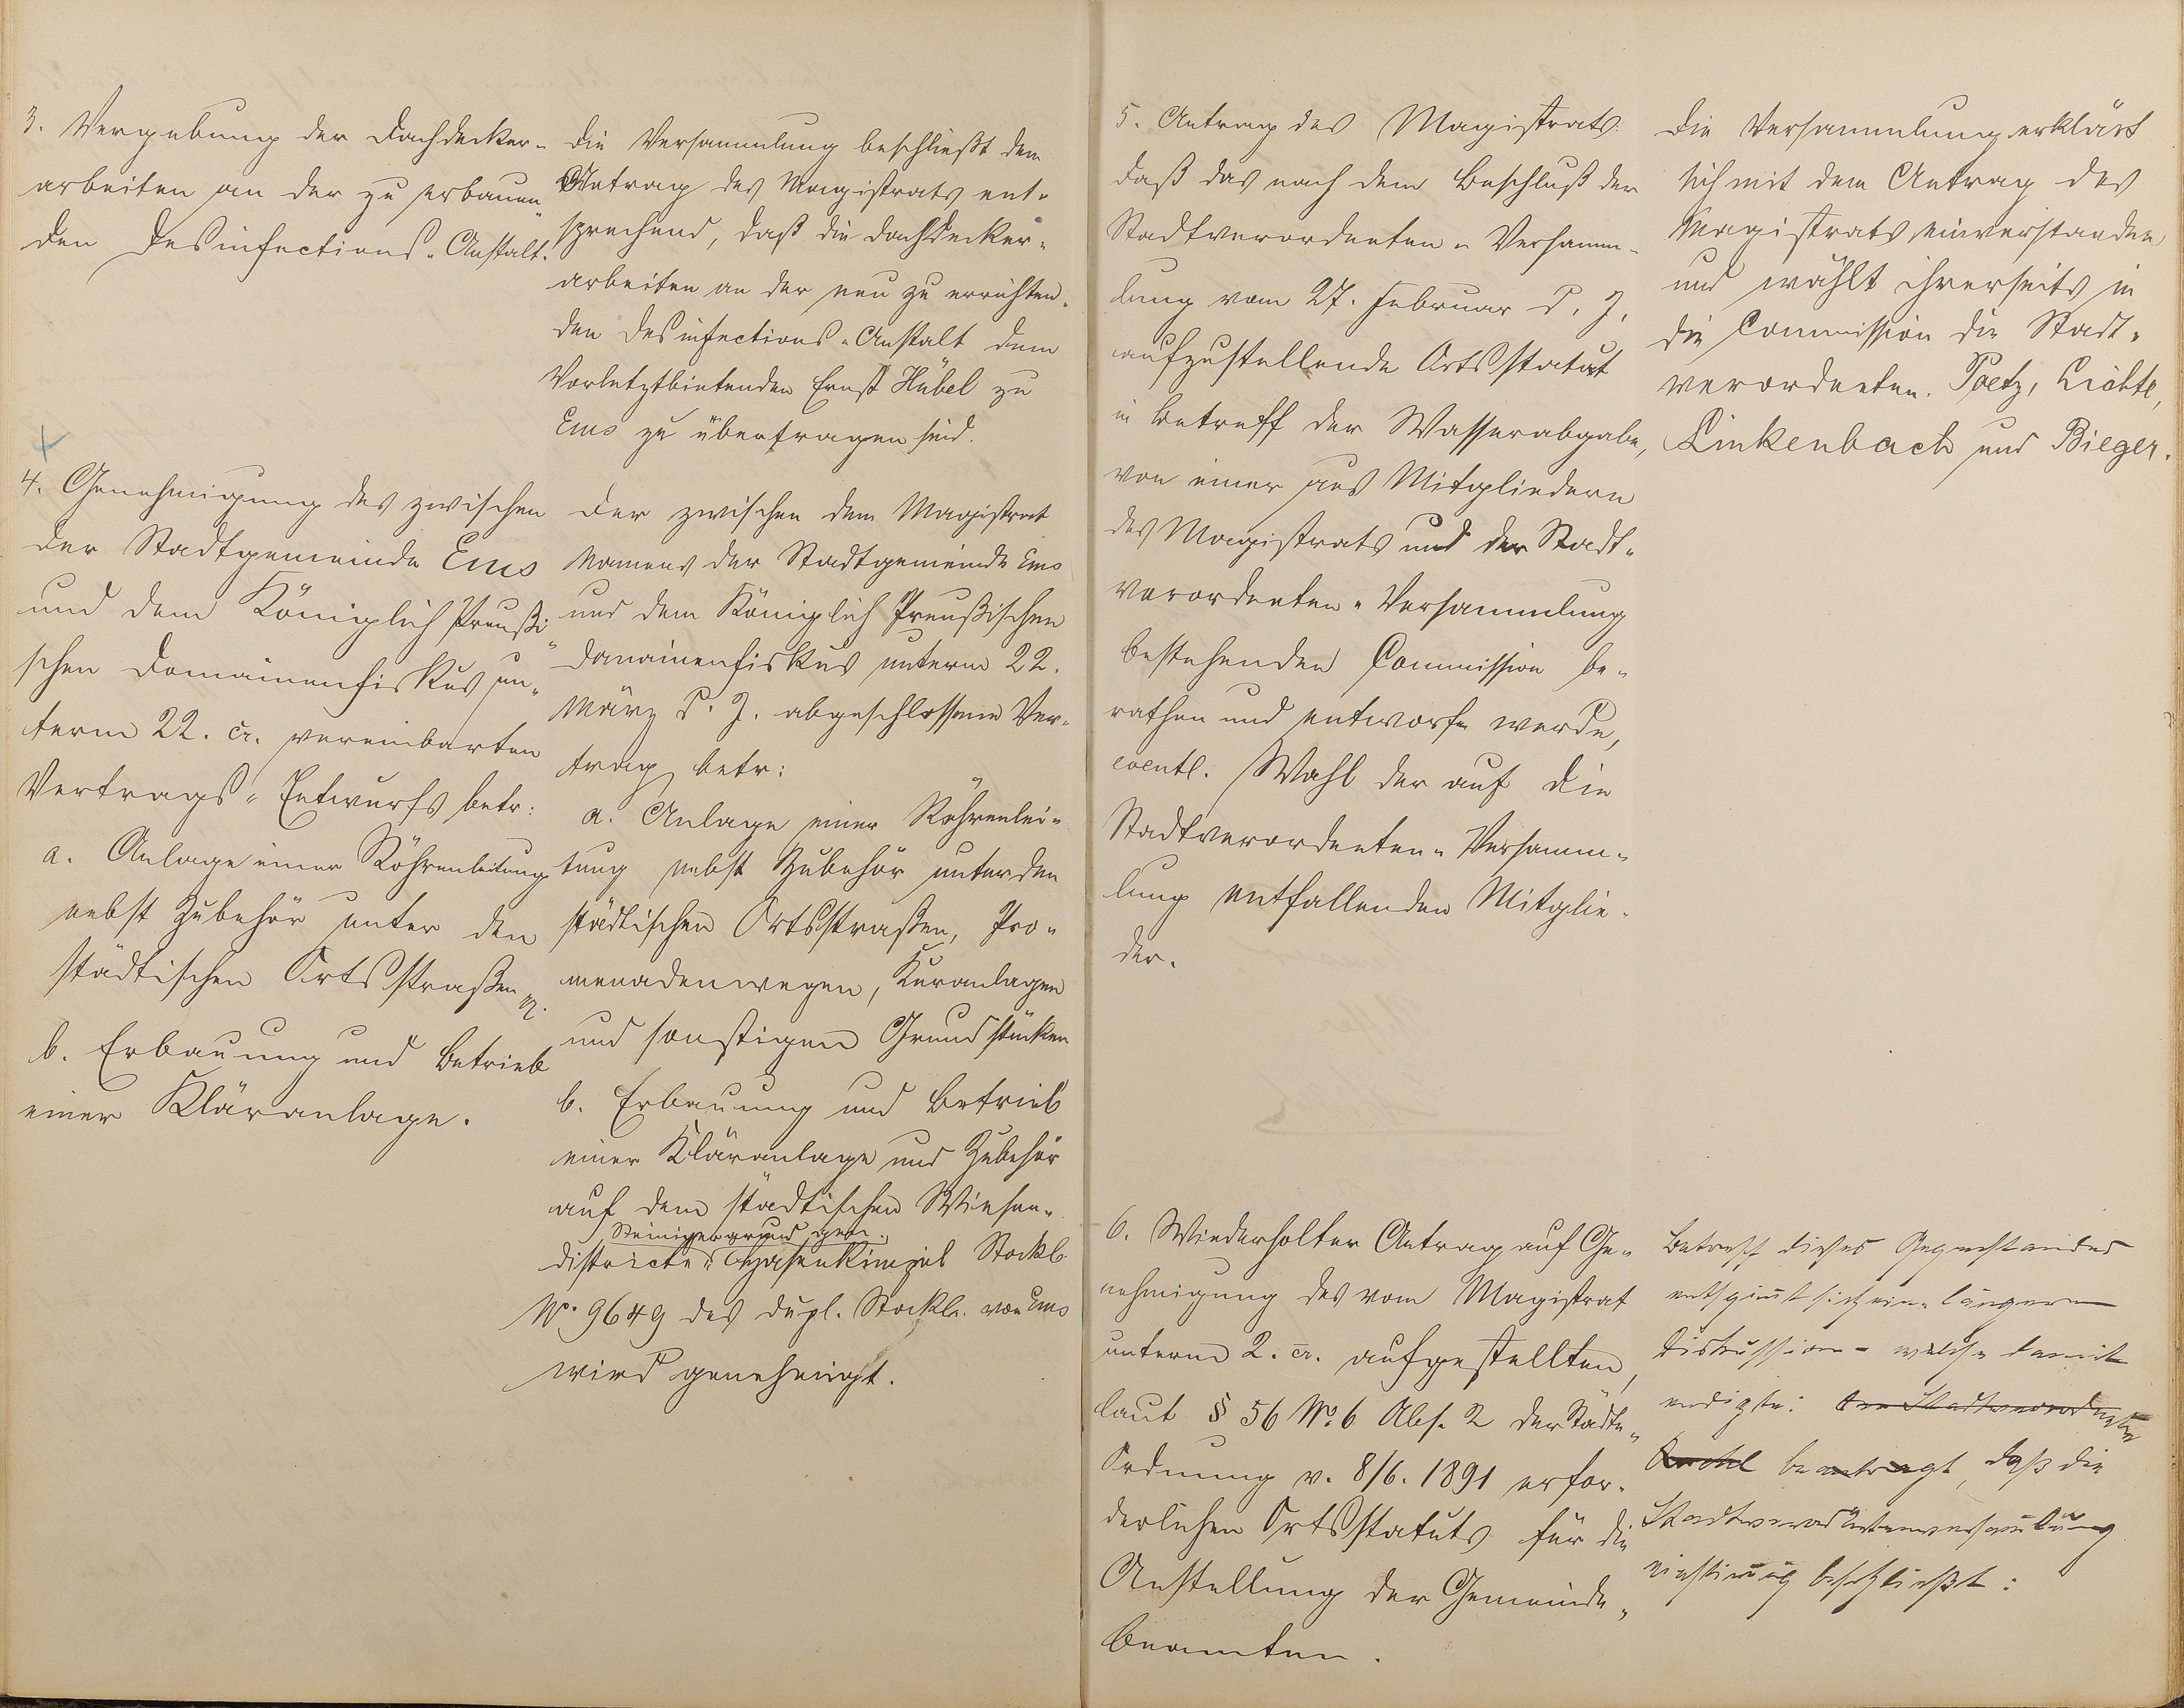 3. Vergebung der Dachdecker-
arbeiten an der zu erbauen-
den Desinfections-Anstalt.
Die Versammlung beschließt dem
Antrag des Magistrats ent-
sprechend, daß die Dachdecker-
arbeiten an der neu zu errichten-
den Desinfections-Anstalt dem
Vorletztbietenden Ernst Hübel zu
Ems zu übertragen sind.
4. Genehmigung des zwischen
der Stadtgemeinde Ems
und dem Königlich Preußi-
schen Domainenfiskus un-
term 22. cr. vereinbarten
Vertrags-Entwurfs betr:
a. Anlage einer Röhrenleitung
nebst Zubehör unter den
städtischen Ortsstraßen
b. Erbauung und Betrieb
einer Kläranlage.
Der zwischen dem Magistrat
Namens der Stadtgemeinde Ems
und dem Königlich Preußischen
Domainenfiskus unterm 22.
März d. J. abgeschlossene Ver-
trag betr:
a. Anlage einer Röhrenlei-
tung nebst Zubehör unter den
städtischen Ortsstraßen, Pro-
menadenwegen, Kuranlagen
und sonstigen Grundstücken
b. Erbauung und Betrieb
einer Kläranlage und Zubehör
auf dem städtischen Wiesen-
Steinigergrund gen.
districte Hasenkümpel Stockb.
No. 9649 des dupl. Stockb. von Ems
wird genehmigt.
5. Antrag des Magistrats
daß das nach dem Beschluß der
Stadtverordneten-Versamm-
lung vom 27. Februar d. J.
aufzustellende Ortsstatut
in Betreff der Wasserabgabe,
von einer aus Mitgliedern
des Magistrats und der Stadt-
verordneten-Versammlung
bestehenden Commission be-
rathen und entworfen werde,
eventl. Wahl der auf die
Stadtverordneten-Versamm-
lung entfallenden Mitglie-
der.
Die Versammlung erklärt
sich mit dem Antrag des
Magistrats einverstanden
und wählt ihrerseits in
die Commission die Stadt-
verordneten. Poetz, Lichte,
Linkenbach und Bieger.
6. Wiederholter Antrag auf Ge-
nehmigung des vom Magistrat
unterm 2. cr. aufgestellten,
laut § 56 No. 6 Abs. 2 der Städte-
Ordnung v. 8/6. 1891 erfor-
derlichen Ortsstatuts für die
Anstellung der Gemeinde-
beamten.
Betreff dieses Gegenstandes
entspinnt sich eine längere
Diskussion - welche damit
endigte: Der Stadtverordnete
beantragt, daß die
Stadtverordnetenversammlung
einstimmig beschließt: